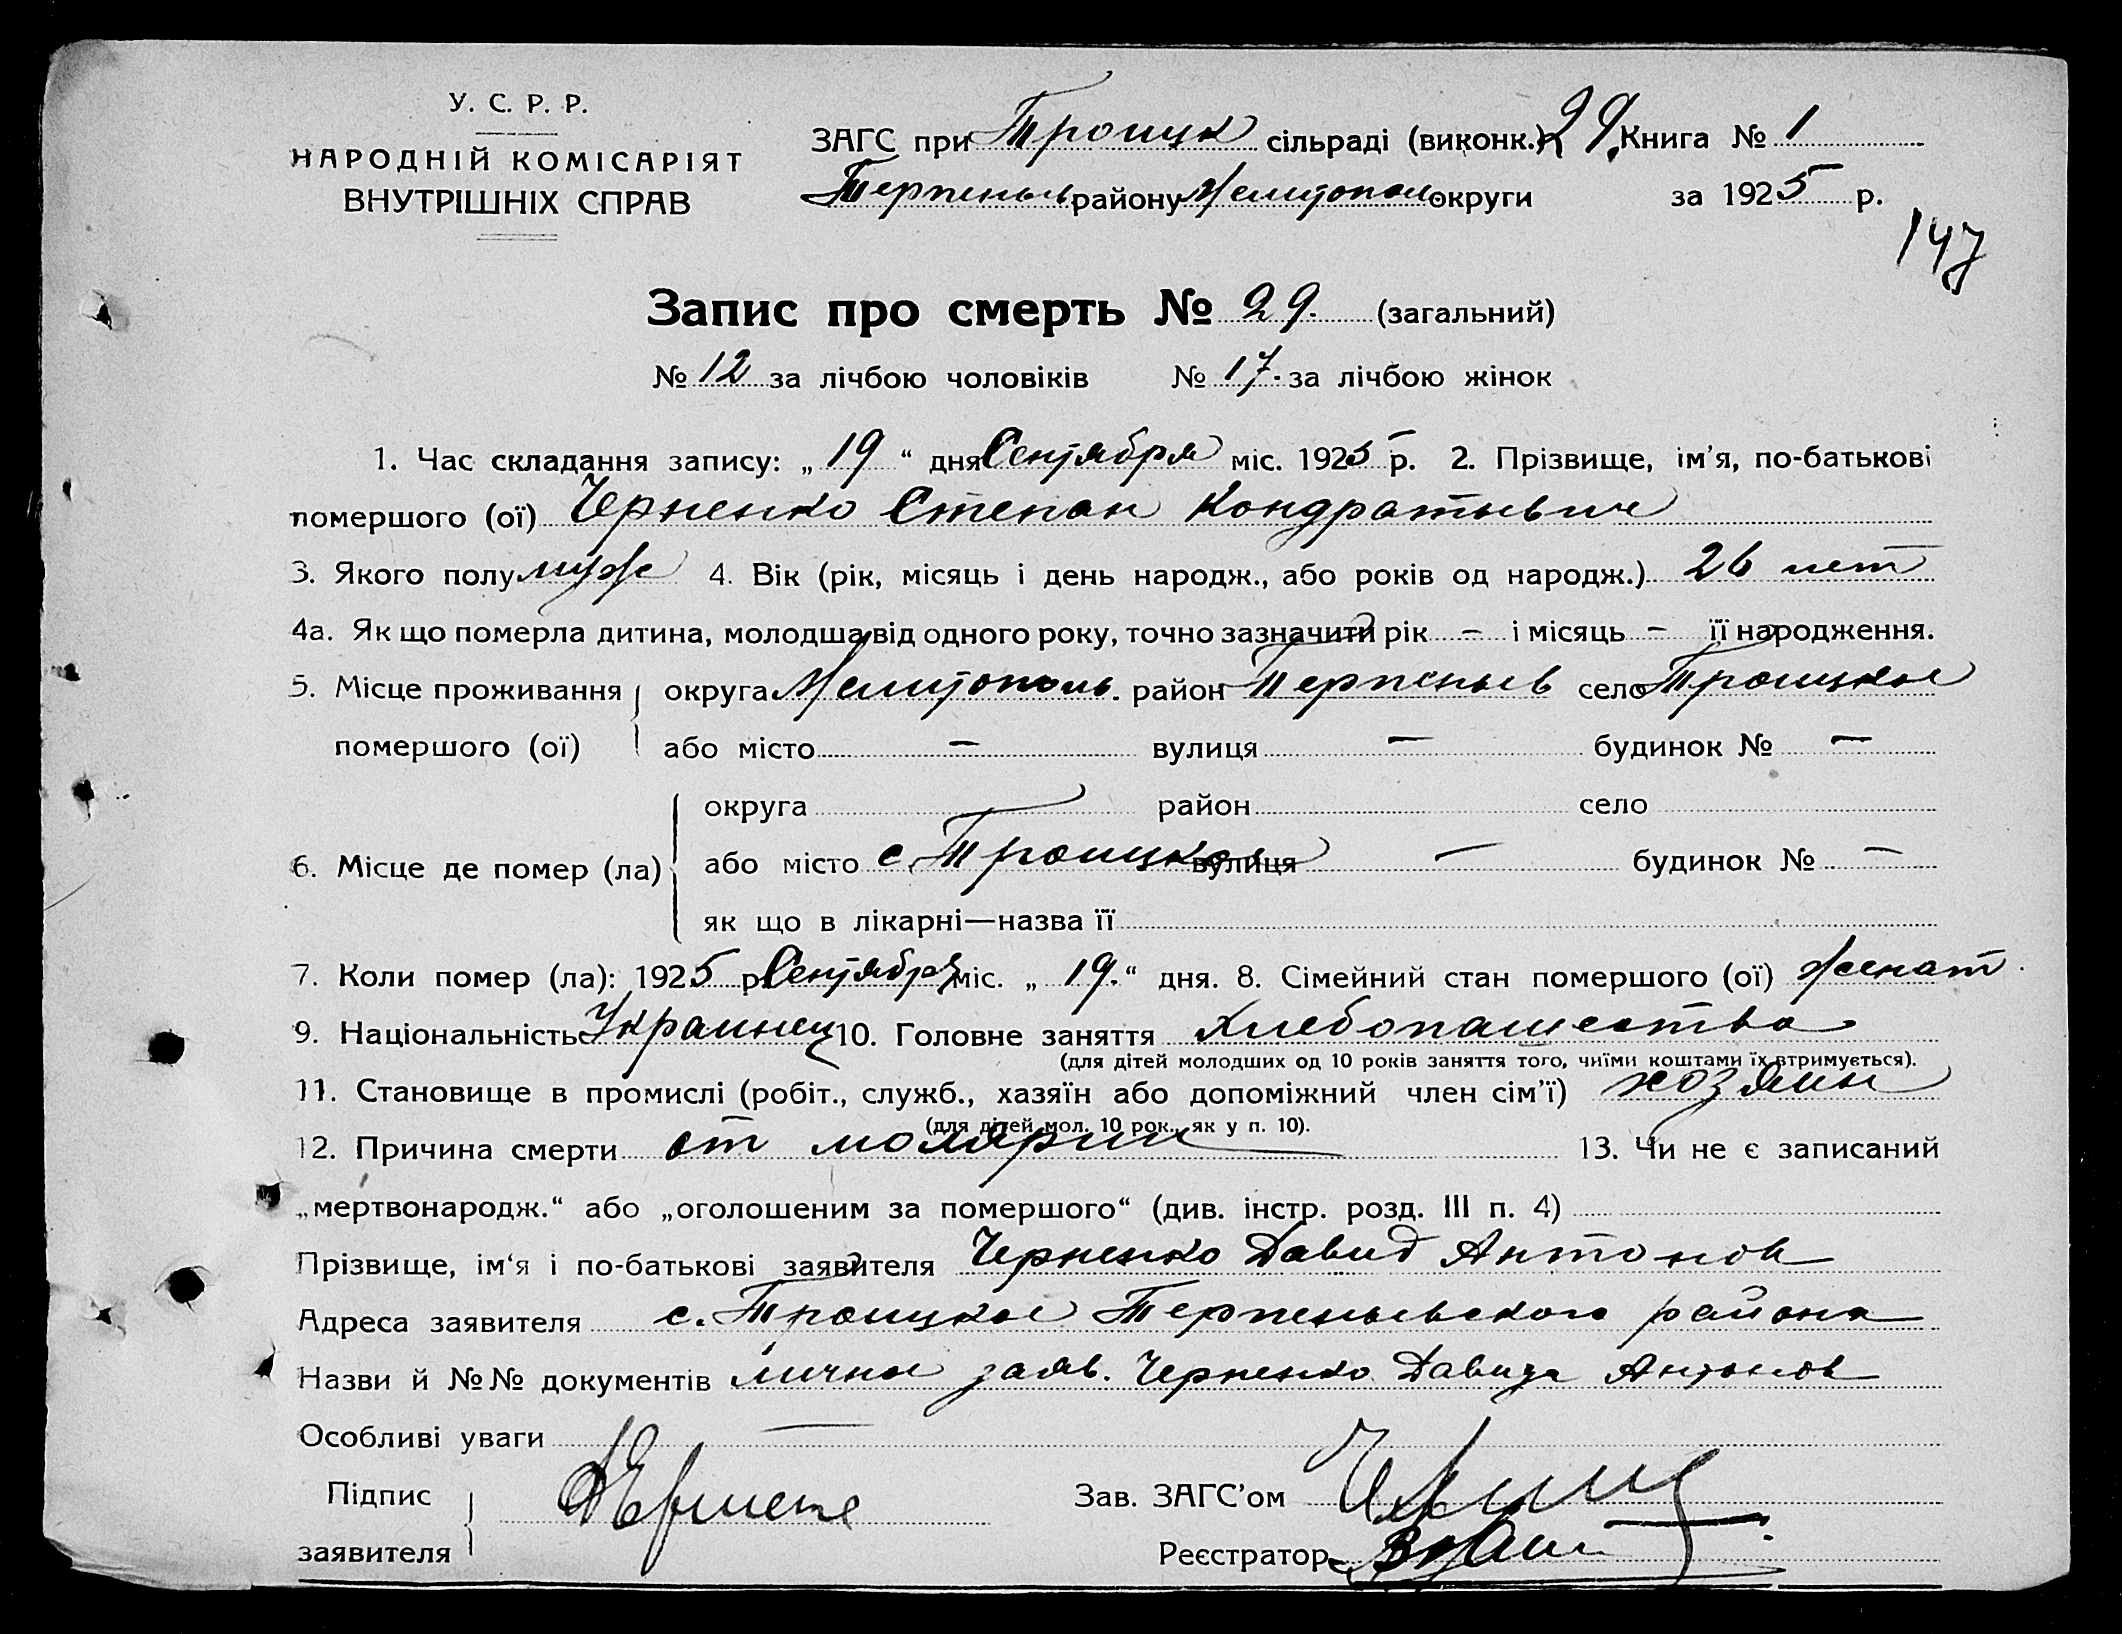 У. С. Р. Р.
НАРОДНІЙ КОМІСАРІЯТ
ВНУТРІШНІХ СПРАВ
ЗАГС при Троицк сільраді (виконк.) 29. Книга № 1
Терпеньев району Мелитопол округи за 1925 р.
147
Запис про смерть № 29. (загальний)
№ 12 за лічбою чоловіків № 17. за лічбою жінок
1. Час складання запису: „ 19 “ дня Сентября міс. 1925 р. 2. Прізвище, ім'я, по-батькові
помершого (ої) Черненко Степан Кондратьевич
3. Якого полу муж 4. Вік (рік, місяць і день народж., або років од народж.) 26 лет
4а. Як що померла дитина, молодша від одного року, точно зазначити рік – і місяць – її народження.
5. Місце проживання округа Мелитополь. район Терпеньев село Троицкое
помершого (ої) або місто – вулиця – будинок № –
округа район село
6. Місце де помер (ла) або місто с. Троицкое вулиця – будинок № –
як що в лікарні—назва її
7. Коли помер (ла): 1925 р. Сентября міс. „ 19. “ дня. 8. Сімейний стан помершого (ої) женат
9. Національність Украинец 10. Головне заняття хлебопашество
(для дітей молодших од 10 років заняття того, чиїми коштами їх втримується).
11. Становище в промислі (робіт., служб., хазяїн або допоміжний член сім'ї) хозяин
(для дітей мол. 10 рок., як у п. 10).
12. Причина смерти от молярии 13. Чи не є записаний
„мертвонародж.“ або „оголошеним за помершого“ (див. інстр. розд. III п. 4)
Прізвище, ім'я і по-батькові заявителя Черненко Давид Антонов
Адреса заявителя с. Троицкое Терпеньевского района
Назви й №№ документів лично заяв. Черненко Давида Антонов
Особливі уваги –
Підпис
заявителя
Зав. ЗАГС'ом
Реєстратор